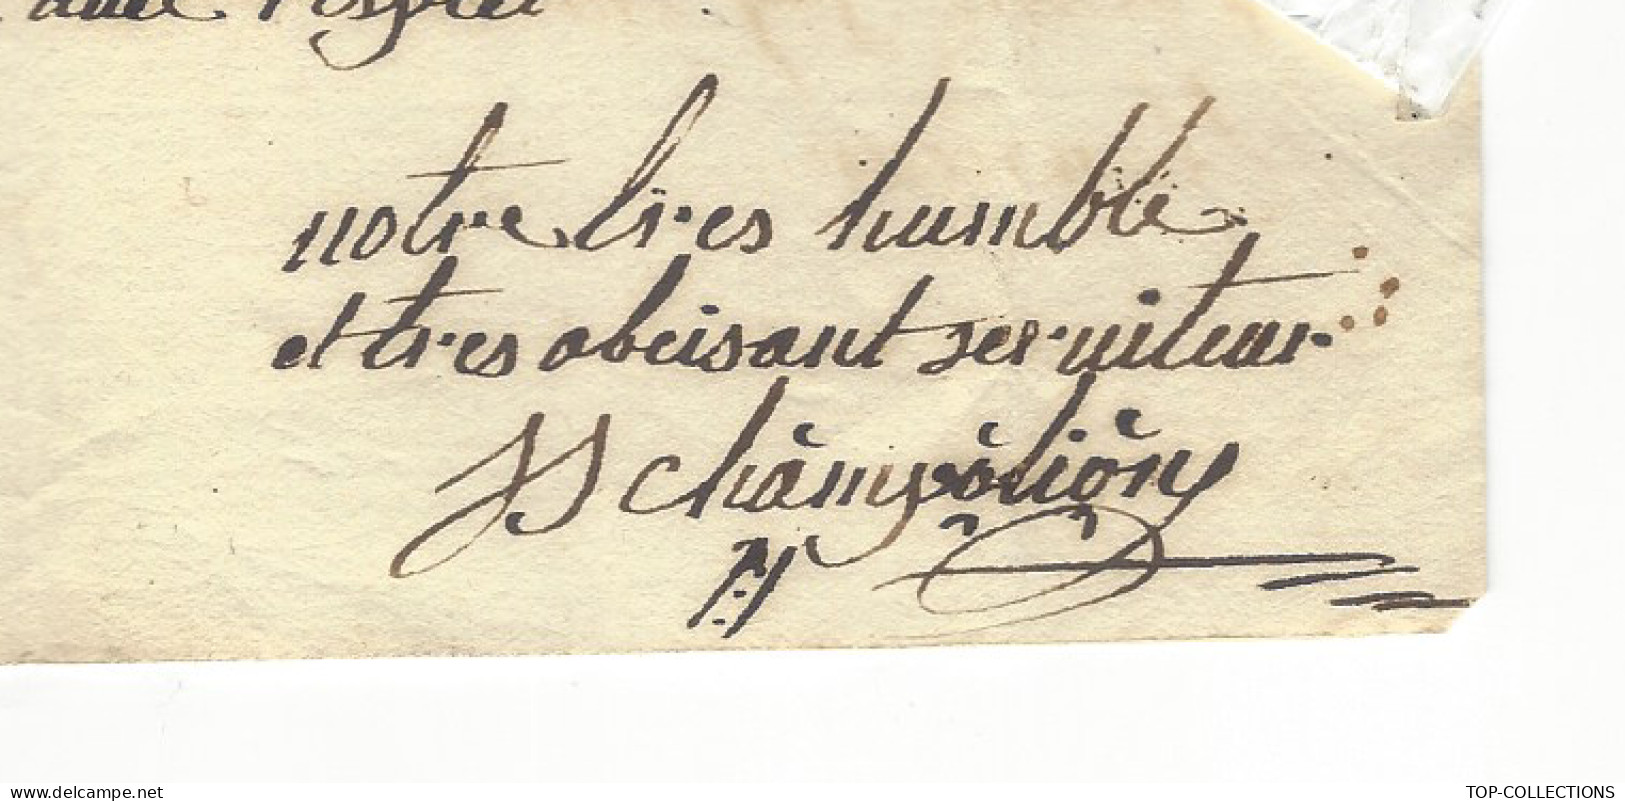 avec respec
notre tres humble
et tres obeisant seruiteur
JJ champolion
www.delcampe.net
TOP-COLLECTIONS